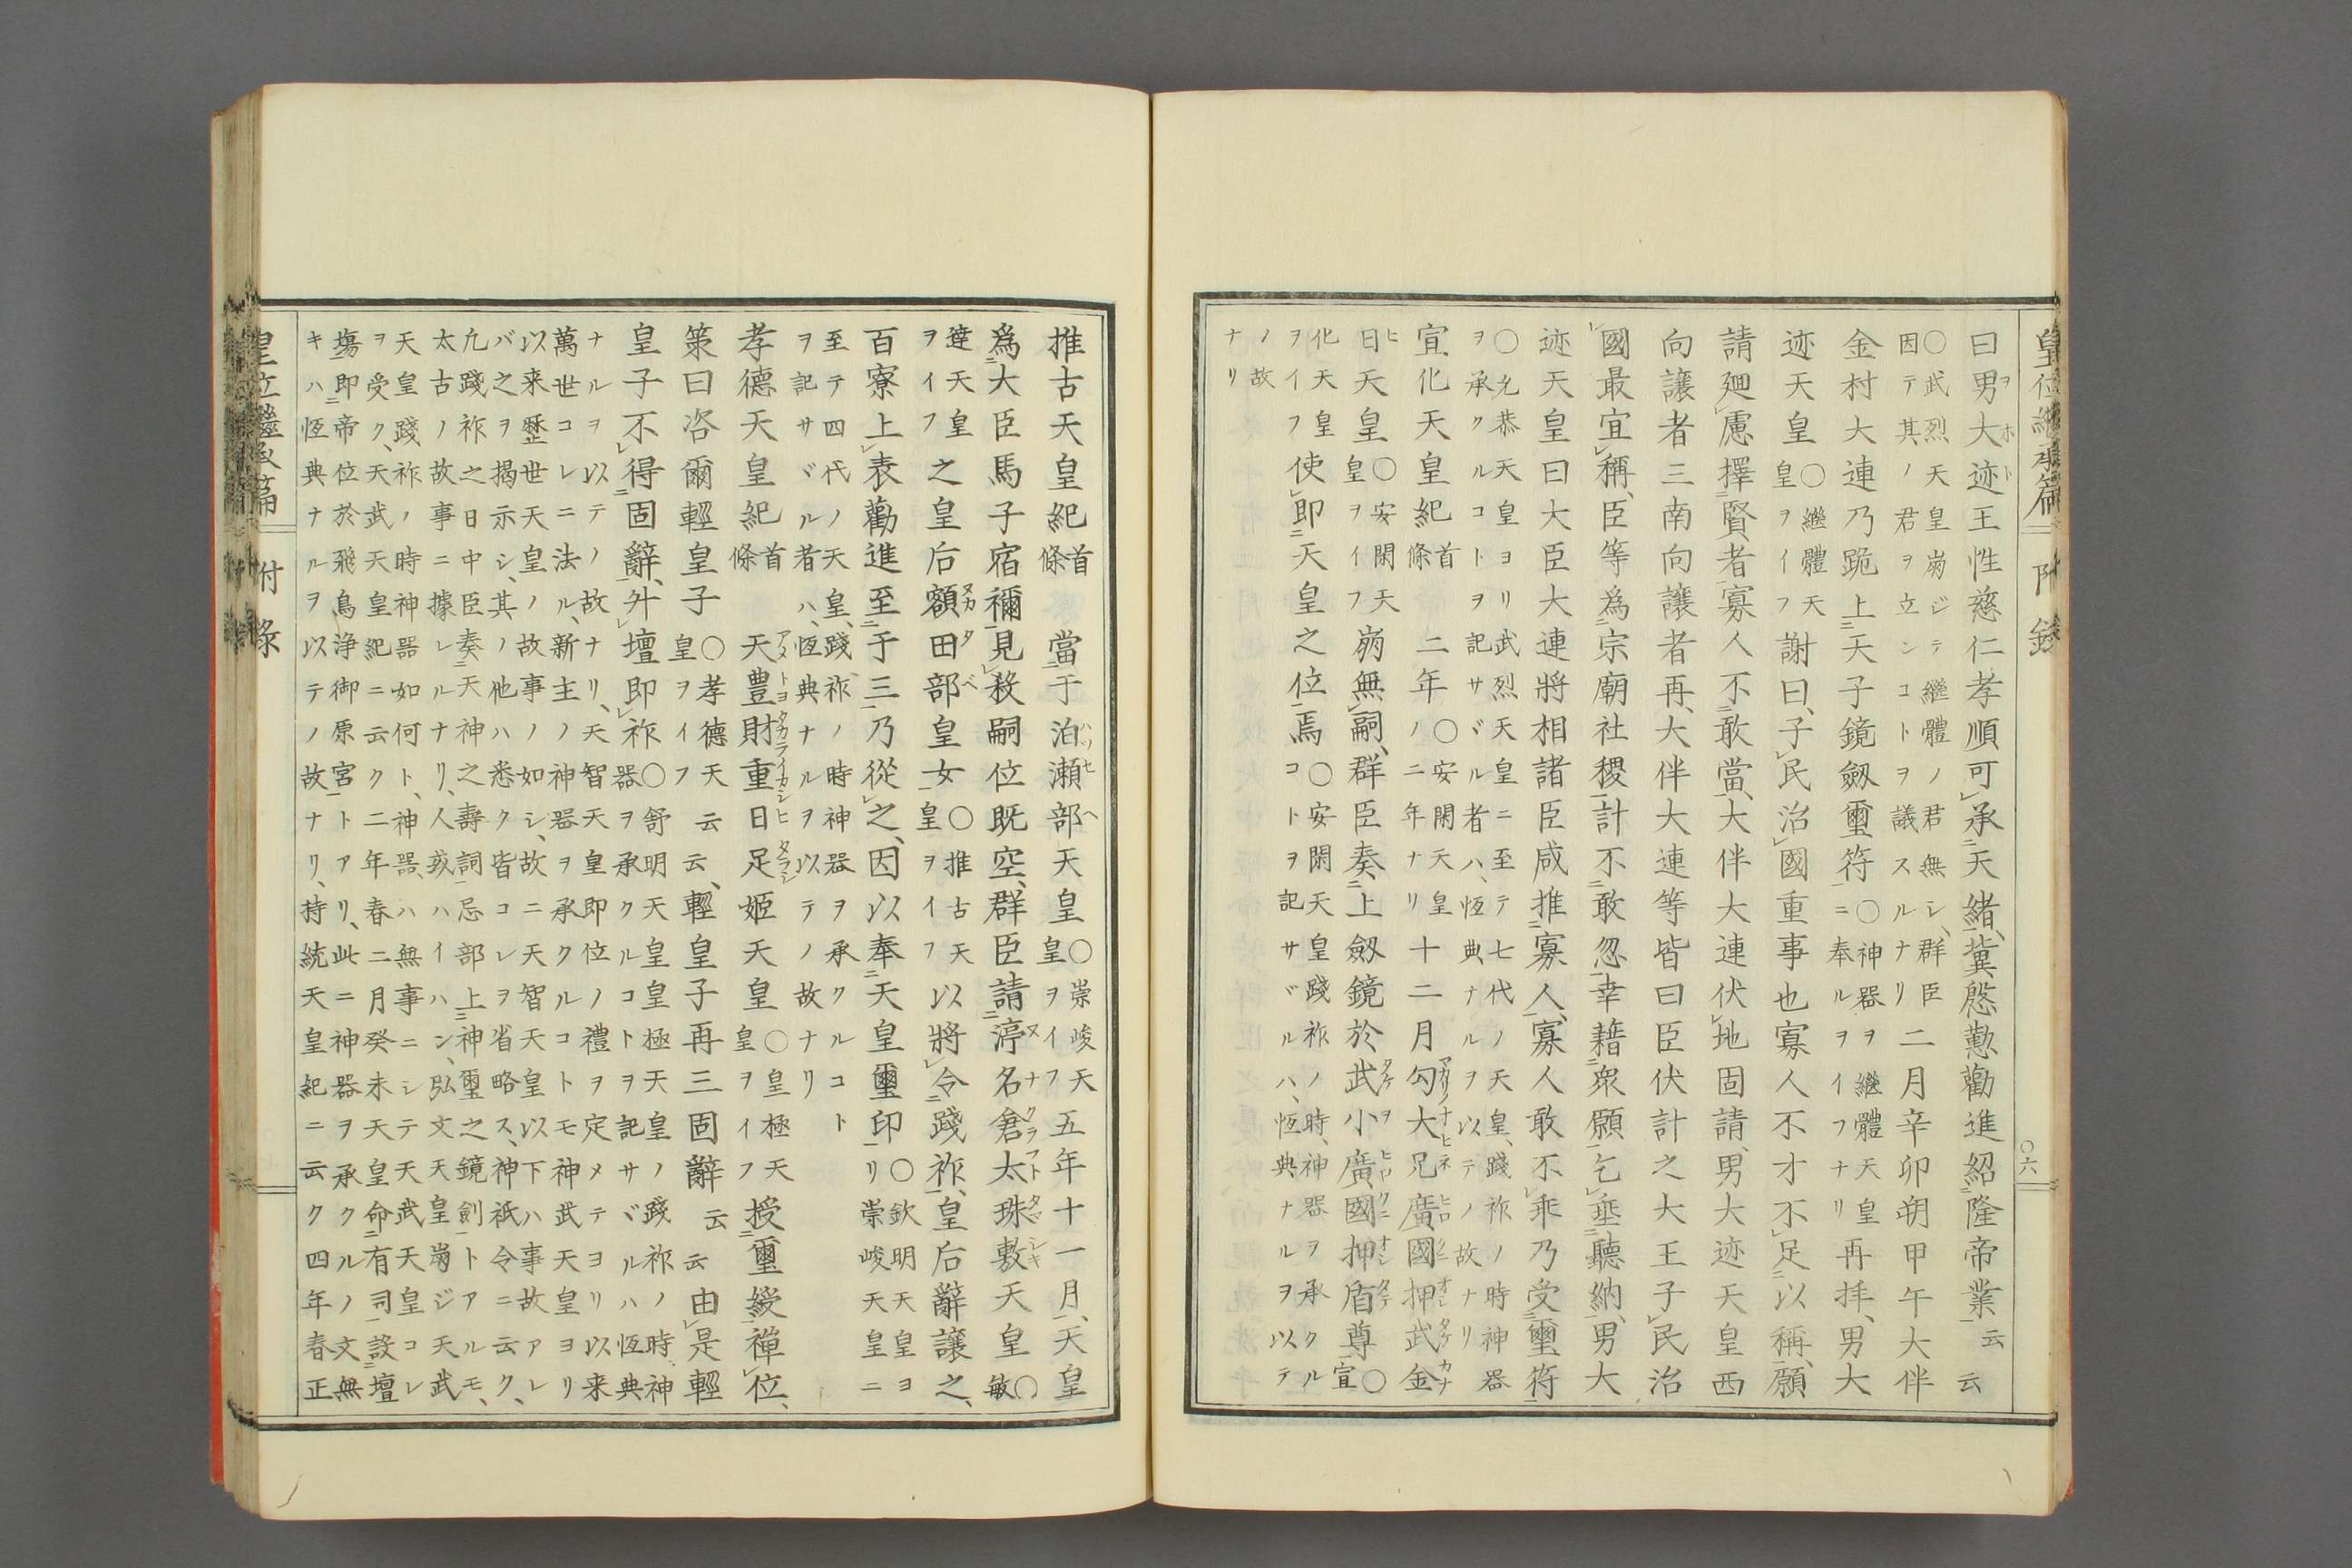 皇位繼承篇 附錄 〇六
曰男大迹王性慈仁孝順可レ承二天緒一、冀慇懃勸進紹二隆帝業一云云
〇武烈天皇崩ジテ繼體ノ君無シ、群臣
因テ其ノ君ヲ立ンコトヲ議スルナリ
二月辛卯朔甲午大伴
金村大連乃跪上二天子鏡劔璽符一
〇神器ヲ繼體天皇
ニ奉ルヲイフナリ
再拝、男大
迹天皇
〇繼體天
皇ヲイフ
謝曰、子レ民治レ國重事也寡人不才不レ足二以稱一、願
請廻レ慮擇二賢者一寡人不二敢當一、大伴大連伏レ地固請、男大迹天皇西
向讓者三南向讓者再、大伴大連等皆曰臣伏計之大王子レ民治
レ國最宜レ稱、臣等為二宗廟社稷一計不二敢忽一幸藉二衆願一乞レ垂二聽納一、男大
迹天皇曰大臣大連將相諸臣咸推二寡人一、寡人敢不レ乖乃受二璽符一
〇允恭天皇ヨリ武烈天皇ニ至テ七代ノ天皇、踐祚ノ時神器
ヲ承クルコトヲ記サヾル者ハ、恆典ナルヲ以テノ故ナリ
宣化天皇紀首條 二年ノ
〇安閑天皇
ノ二年ナリ
十二月勾大兄廣國押武金
日天皇
〇安閑天
皇ヲイフ
崩無レ嗣、群臣奏二上劔鏡於武小廣國押盾尊一
〇宣
化天皇
ヲイフ
使レ即二天皇之位一焉
〇安閑天皇踐祚ノ時、神器ヲ承クル
コトヲ記サヾルハ、恆典ナルヲ以テ
ノ故
ナリ
推古天皇紀首條 當二于泊瀬部天皇
〇崇峻天
皇ヲイフ
五年十一月一、天皇
為二大臣馬子宿禰一見レ殺嗣位既空、群臣請二渟名倉太珠敷天皇
〇敏
達天皇
ヲイフ
之皇后額田部皇女一
〇推古天
皇ヲイフ
以將レ令二踐祚一、皇后辭讓之、
百寮上レ表勸進至二于三一乃從レ之、因以奉二天皇璽印一
〇欽明天皇ヨ
リ崇峻天皇ニ
至テ四代ノ天皇、踐祚ノ時神器ヲ承クルコト
ヲ記サヾル者ハ、恆典ナルヲ以テノ故ナリ
孝德天皇紀首條 天豊財重日足姫天皇
〇皇極天
皇ヲイフ
授二璽綬一禪レ位、
策曰咨爾輕皇子
〇孝德天
皇ヲイフ
云云、輕皇子再三固辭云云由レ是輕
皇子不レ得二固辭一、升レ壇即レ祚
〇舒明天皇皇極天皇ノ踐祚ノ時、神
器ヲ承クルコトヲ記サヾルハ恆典
ナルヲ以テノ故ナリ、天智天皇即位ノ禮ヲ定メテヨリ以来
萬世コレニ法ル、新主ノ神器ヲ承クルコトモ神武天皇ヨリ
以来歴世天皇ノ故事ノ如シ、故ニ天智天皇以下ハ事故アレ
バ之ヲ揭示シ、其ノ他ハ悉ク皆コレヲ省略ス、神祇令ニ云ク、
凡踐祚之日中臣奏二天神之壽詞一忌部上二神璽之鏡劍一トアルモ、
太古ノ故事ニ據レルナリ、人或ハイハン、弘文天皇崩ジ天武
天皇踐祚ノ時神器如何ト、神器ハ無事ニシテ天武天皇コレ
ヲ受ク、天武天皇紀ニ云ク二年春二月癸未天皇命二有司一設二壇
塲一即二帝位於飛鳥浄御原宮一トアリ、此ニ神器ヲ承クルノ文無
キハ恆典ナルヲ以テノ故ナリ、持統天皇紀ニ云ク四年春正
皇位繼承篇 附錄